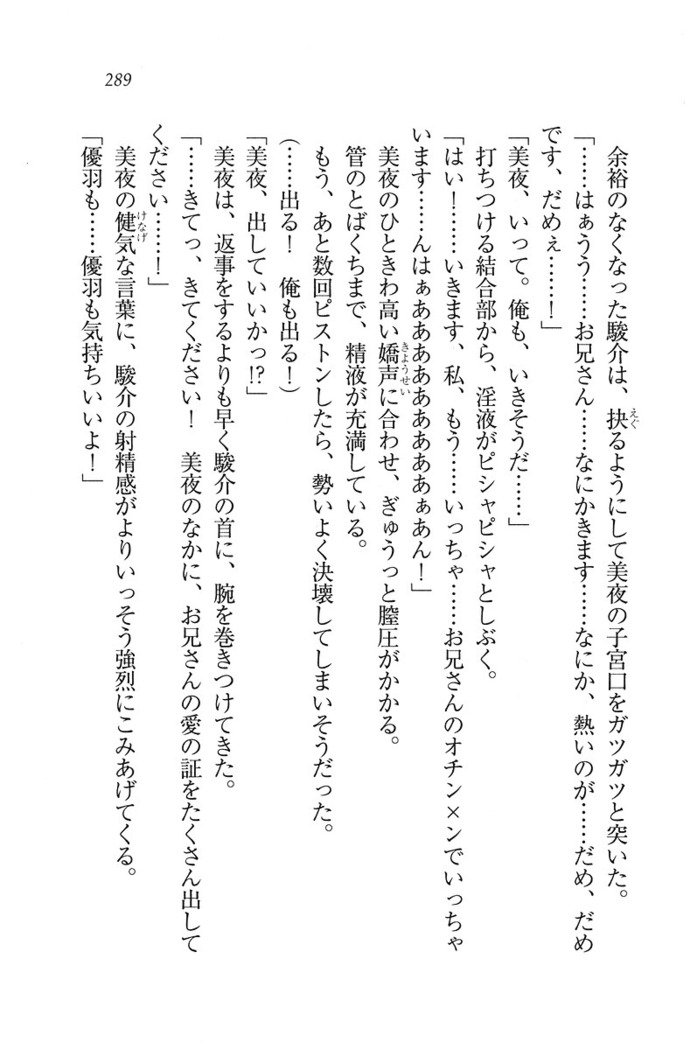 289
余裕のなくなった駿介は、抉るようにして美夜の子宮口をガツガツと突いた。
「……はぁうう……お兄さん……なにかきます……なにか、熱いのが……だめ、だめ
です、だめぇ……！」
「美夜、いって。俺も、いきそうだ……」
打ちつける結合部から、淫液がピシャピシャとしぶく。
「はい！……いきます、私、もう……いっちゃ……お兄さんのオチン×ンでいっちゃ
います……んはぁあああああああああぁあん！」
美夜のひときわ高い嬌声に合わせ、ぎゅうっと膣圧がかかる。
管のとばくちまで、精液が充満している。
もう、あと数回ピストンしたら、勢いよく決壊してしまいそうだった。
（……出る！　俺も出る！）
「美夜、出していいかっ!?」
美夜は、返事をするよりも早く駿介の首に、腕を巻きつけてきた。
「……きてっ、きてください！　美夜のなかに、お兄さんの愛の証をたくさん出して
ください……！」
美夜の健気な言葉に、駿介の射精感がよりいっそう強烈にこみあげてくる。
「優羽も……優羽も気持ちいいよ！」